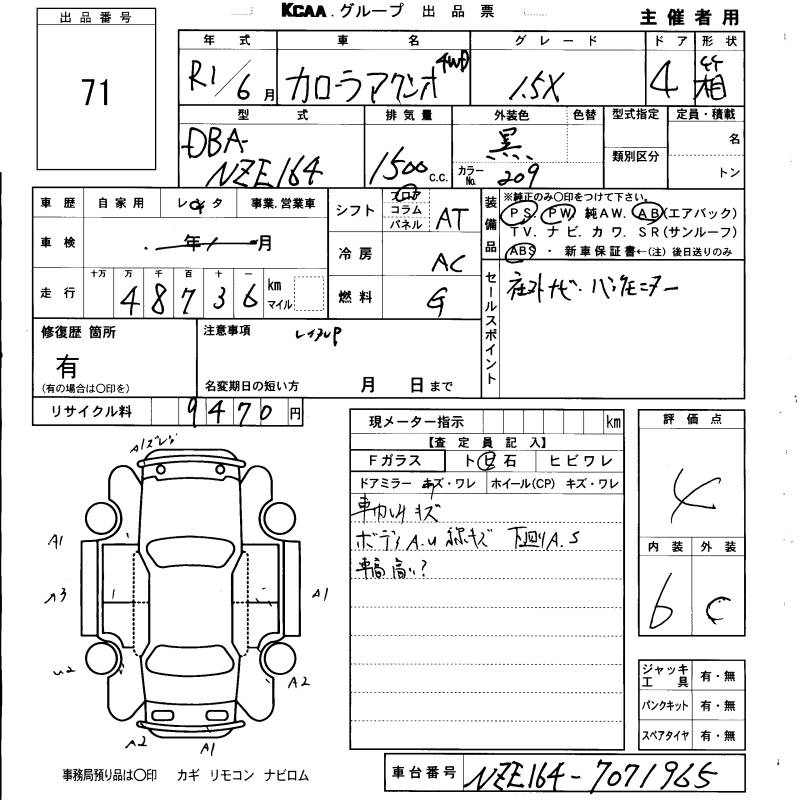 KCAA.グループ 出品票
主催者用
出品番号
71
年式 車名 グレード ドア 形状
R1/6月 カローラアクシオ 4WD 1.5X 4 箱
型式 排気量 外装色 色替 型式指定 定員・積載
DBA-NZE164 1500 c.c. 黒 カラーNo. 209 類別区分 名
トン
車歴 自家用 レンタ 事業.営業車
シフト フロア コラム パネル AT
装備品 ※純正のみ○印をつけて下さい。
PS. PW 純AW. AB(エアバック)
TV. ナビ. カワ. SR(サンルーフ)
ABS ・ 新車保証書←(注) 後日送りのみ
車検 年 月
冷房 AC
走行 十万 万 千 百 十 一 km マイル
48736
燃料 G
セールスポイント 社外ナビ.バックモニター
修復歴 箇所
有
(有の場合は○印を)
注意事項 レンタUP
名変期日の短い方 月 日まで
リサイクル料 9470 円
現メーター指示 km
【査定員記入】
Fガラス ト.ビ石 ヒビワレ
ドアミラー キズ・ワレ ホイール(CP) キズ・ワレ
車内 キズ
ボディA.U 線キズ 下回りA.S
車高 高い?
評価点
4
内装 外装
6 C
A1 A1 A2 A2 A1
ジャッキ工具 有・無
パンクキット 有・無
スペアタイヤ 有・無
事務局預り品は○印 カギ リモコン ナビロム
車台番号 NZE164-7071965